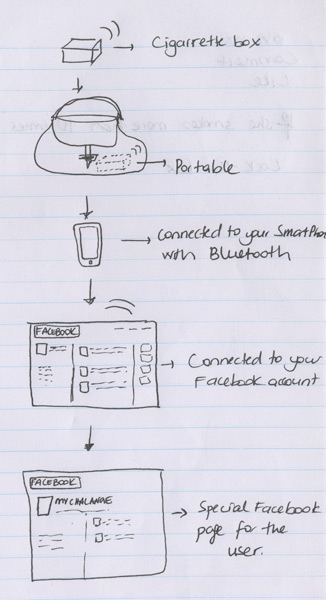 Cigarrette box
Portable
Connected to your SmartPho
with Bluetooth
FACEBOOK
Connected to your
Facebook account
FACEBOOK
MYCHALANGE
Special Facebook
page for the
user.